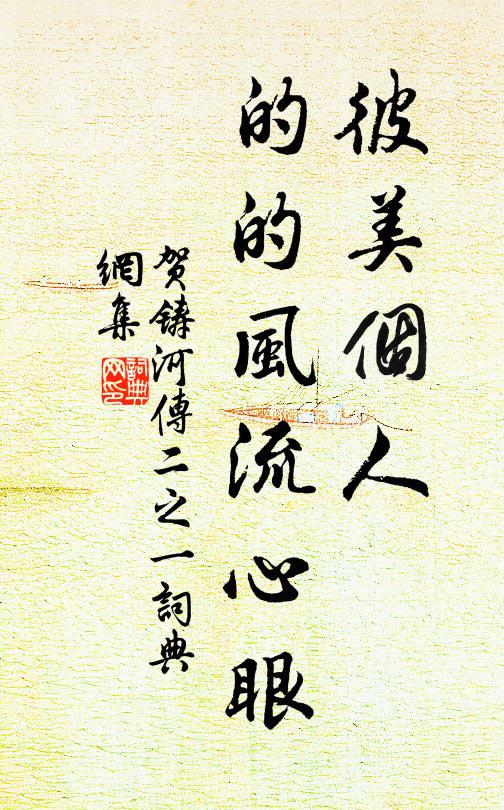 彼美個人
的的風流心眼
賀鑄河傳二之一詞典
網集
詞典
网印